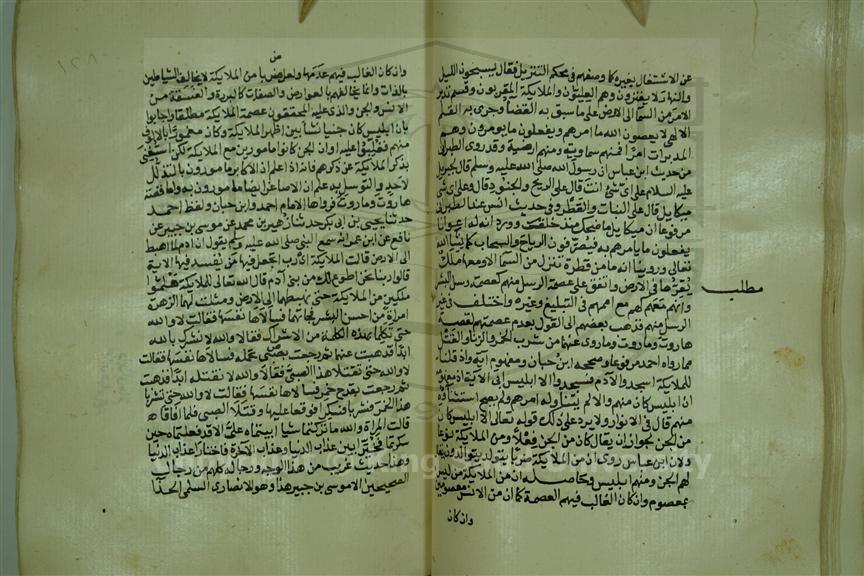 عن الاشتغال بغيره كما وصفهم في محكم التنزيل فقال يسبحون الليل
والنهار لا يفترون وهم العليون والملايكة المقربون وقسم تدبر
الامر من السما الى الارض على ما سبق به القضا وجرى به القلم
الالهى لا يعصون الله ما امرهم ويفعلون ما يومرون وهم
المدبرات امرا فمنهم سماوية ومنهم ارضية وقد روى الطبرانى
من حديث ابن عباس ان رسول الله صلى الله عليه وسلم قال لجبريل
عليه السلام على اى شى انت قال على الريح والجنود قال وعلى اى شى
ميكايل قال على النبات والقطر وفي حديث انس عند الطبرانى
مرفوعا ان ميكايل ما ضحك منذ خلقت وورد انه له اعوانا
يفعلون ما يامرهم به فيصرفون الرياح والسحاب كما يشا الله
تعالى وروينا انه ما من قطرة تنزل من السما الا ومعها ملك
يقرها في الارض واتفق على عصمة الرسل منهم كعصمة رسل البشر
مطلب
وانهم معهم كهم مع اممهم في التبليغ وغيره واختلف في غير
الرسل منهم فذهب بعضهم الى القول بعدم عصمتهم لقصة
هاروت وماروت وما روى عنهما من شرب الخمر والزنا والقتل
مما رواه احمد مرفوعا وصححه ابن حبان ومفهوم اية واذ قلنا
للملايكة اسجدوا لادم فسجدوا الا ابليس ابى الاية اذ مفهومه
ان ابليس كان منهم والا لم يتناوله امرهم ولم يصح استثناؤه
منهم قال في الانوار ولا يرد على ذلك قوله تعالى الا ابليس كان
من الجن لجواز ان يقال كان من الجن فعلا ومن الملايكة نوعا
ولان ابن عباس روى ان من الملايكة ضربا يتوالدون يقال
لهم الجن ومنهم ابليس وحاصله ان من الملايكة من ليس
بمعصوم وان كان الغالب فيهم العصمة كما ان من الانس معصومين
وان كان
وان كان الغالب فيهم عدمها ولعل ضربا من الملايكة لا يخالف الشياطين
بالذات وانما يخالفهم بالعوارض والصفات كالبررة والفسقة من
الانس والجن والذى عليه المحققون عصمة الملايكة مطلقا واجابوا
بان ابليس كان جنيا نشا بين اظهر الملايكة وكان مغمورا بالالوف
منهم فغلبوا عليه او ان الجن كانوا مامورين مع الملايكة لكن استغنى
بذكر الملايكة عن ذكرهم فانه اذا علم ان الاكابر مامورون بالتذلل
لاحد والتوسل به علم ان الاصاغر ايضا مامورون به واما قصة
هاروت وماروت فرواها الامام احمد وابن حبان ولفظ احمد
حدثنا يحيى بن ابى بكر حدثنا زهير بن محمد عن موسى بن جبير عن
نافع عن ابن عمر انه سمع النبى صلى الله عليه وسلم يقول ان ادم لما اهبط
الى الارض قالت الملايكة اى رب اتجعل فيها من يفسد فيها الاية
قالوا ربنا نحن اطوع لك من بنى ادم قال الله تعالى للملايكة هلموا
ملكين من الملايكة حتى نهبطهما الى الارض ومثلت لهما الزهرة
امراة من احسن البشر فجاتهما فسالاها نفسها فقالت لا والله
حتى تكلما بهذه الكلمة من الاشراك فقالا والله لا نشرك بالله
ابدا فذهبت عنهما ثم رجعت بصبى تحمله فسالاها نفسها فقالت
لا والله حتى تقتلا هذا الصبى فقالا والله لا نقتله ابدا فذهبت
ثم رجعت بقدح خمر فسالاها نفسها فقالت لا والله حتى تشربا
هذا الخمر فشربا فسكرا فوقعا عليها وقتلا الصبى فلما افاقا
قالت المراة والله ما تركتما شيا ابيتماه على الا قد فعلتماه حين
سكرتما فخيرا بين عذاب الدنيا وعذاب الاخرة فاختارا عذاب الدنيا
وهذا حديث غريب من هذا الوجه ورجاله كلهم من رجال
الصحيحين الا موسى بن جبير هذا وهو الانصارى السلمى الحذا